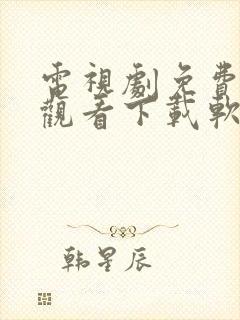 電視劇免費
觀看下載軟
韩星辰